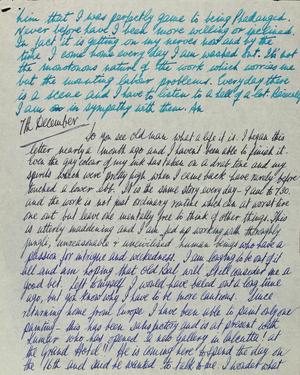 him that I was perfectly game to being Predanged.
Never before have I been more willing or inclined.
In fact it is getting on my nerves now and by the
time I come home every day I am washed out. It's not
the monotonous nature of the work which worries me
but the unending labour problems. Everyday there
is a scene and I have to listen to a hell of a lot. Sincerely
I am in sympathy with them. An
7th December.
Do you see old man what a life it is. I began this
letter nearly a month ago and I haven't been able to finish it.
Even the gay colour of my ink has taken on a drab tone and my
spirits which were pretty high when I came back have rarely before
touched a lower ebb. It is the same story everyday - 9 and to 7.30.
and the work is not just ordinary routine which can at worst bore
one out but leave one mentally free to think of other things. This
is utterly maddening and I am fed up working with thoroughly
jungle, unreasonable & uncivilised human beings who have a
passion for intrigue and wickedness. I am longing to be out of it
all and am hoping that old will still consider me a
good bet. Left to myself I would have bailed out a long time
ago, but you know why I have to be more cautious. Since
returning home from Europe I have been able to paint only one
painting - this has been satisfactory and is at present with
Kumar who has opened a new gallery in Calcutta! at
the Grand Hotel!! He is coming here to spend the day on
the 16th and and he wanted to talk to me. I wonder what